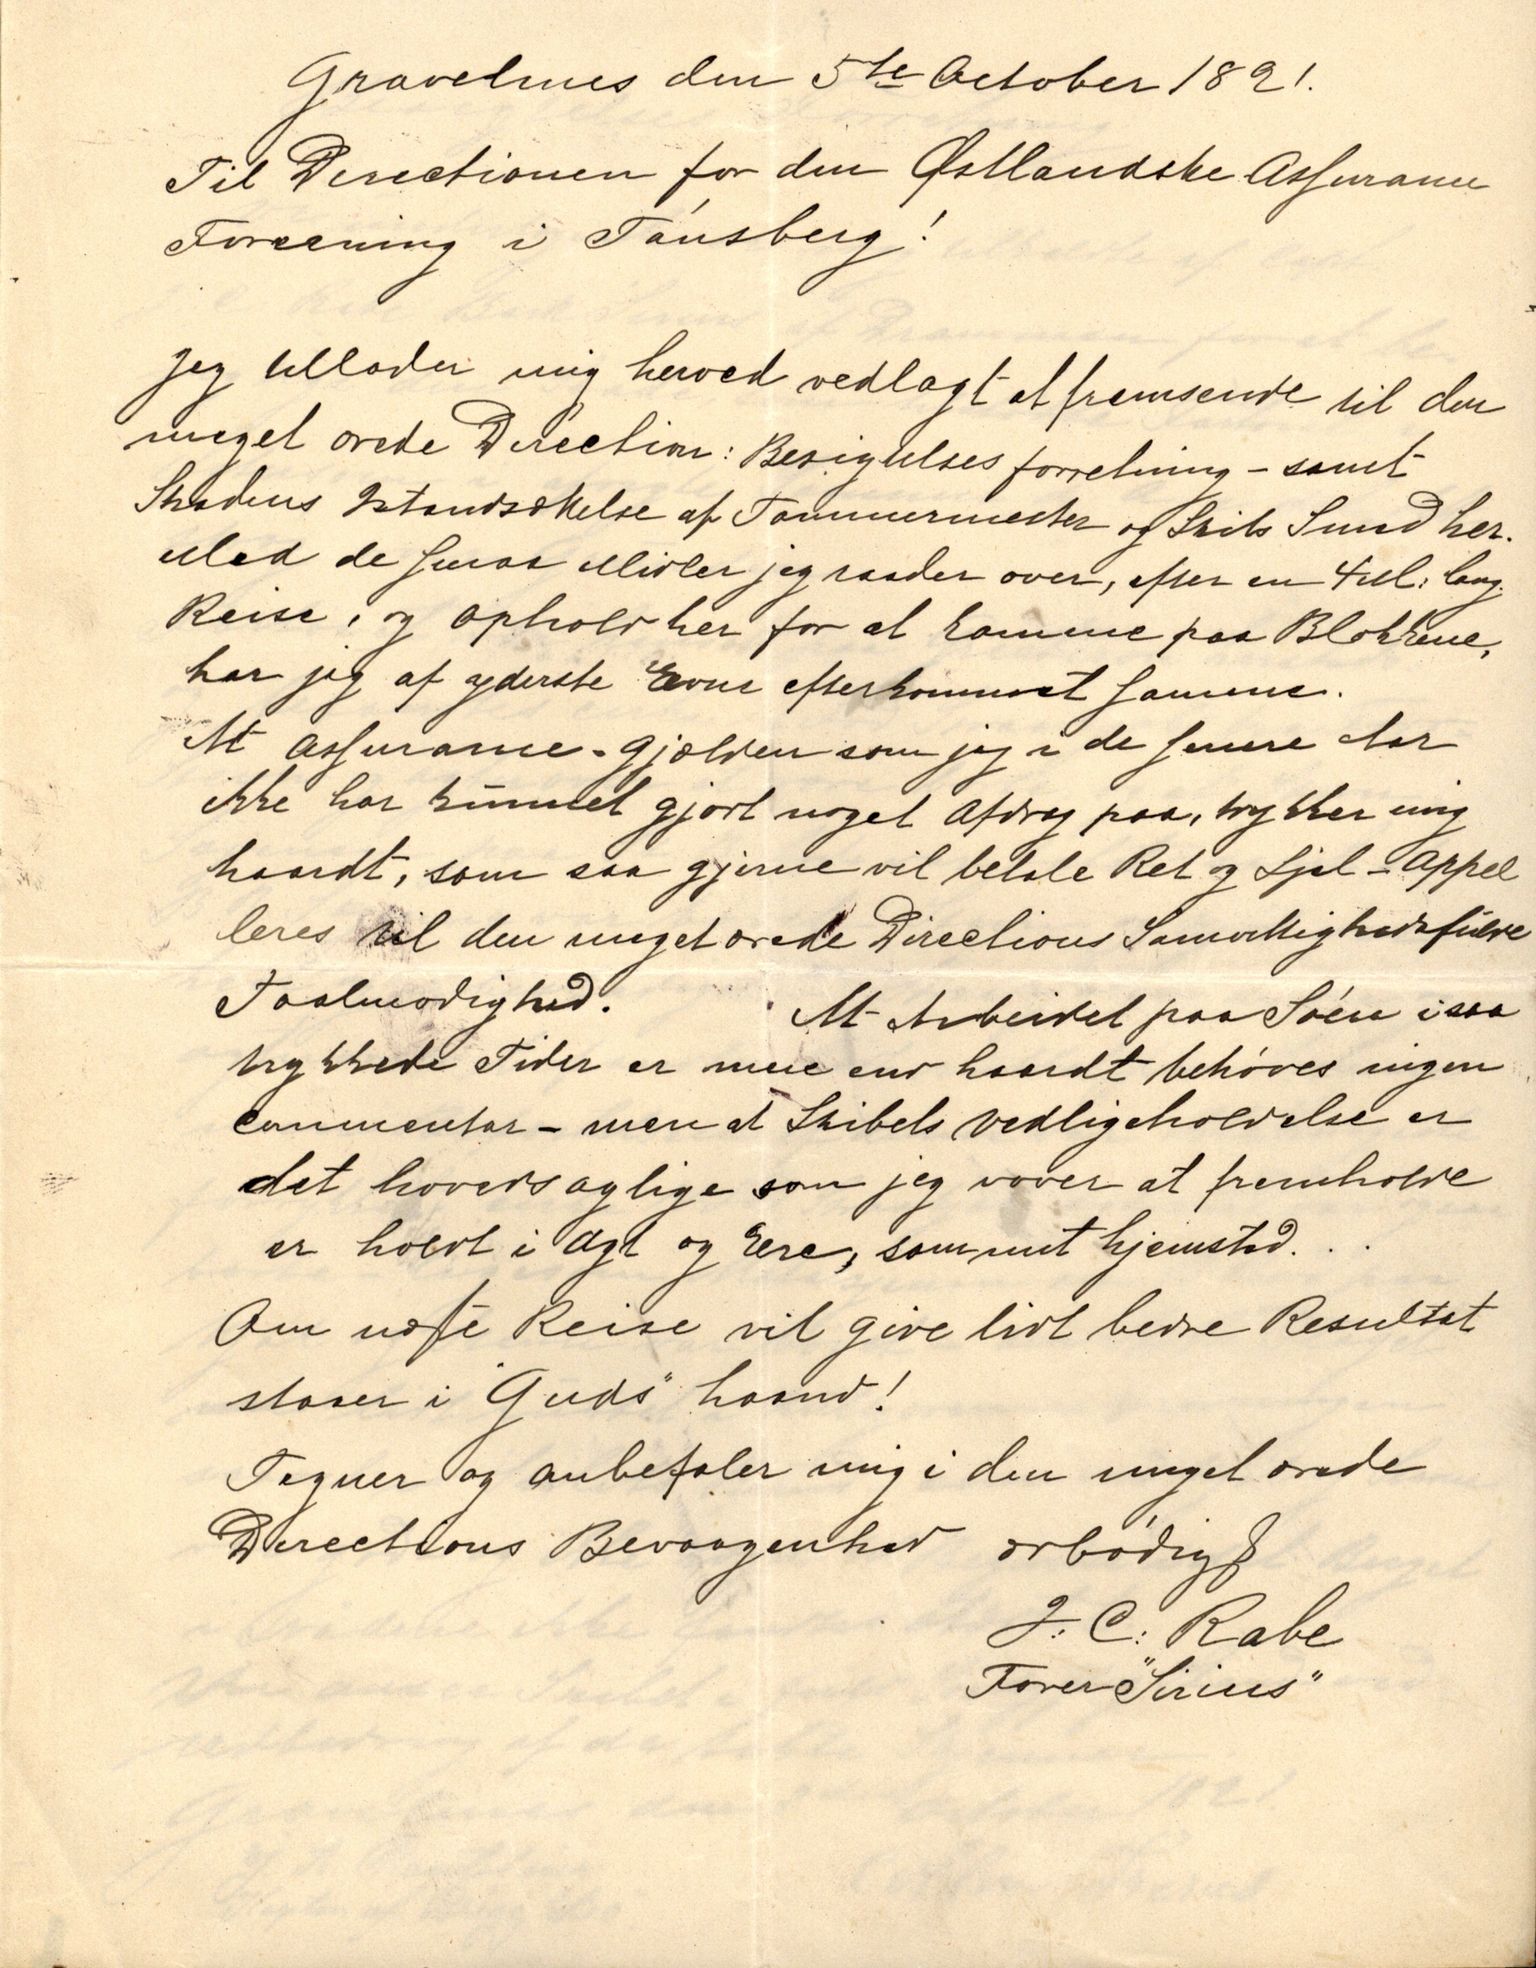 Gravelines den 5te October 1891.
Til Directionen for den Østlandske Assurance
Foreening i Tönsberg!
Jeg tillader mig herved vedlagt at fremsende til den
meget ærede Direction: Besigtelses forretning – samt
Skadens Istandsættelse af Tømmermester og Skibs Smed her.
Med de smaa Midler jeg raader over, efter en 4 M: lang
Reise, og Ophold her for at komme paa Blokkene,
har jeg af yderste Evne efterkommet samme.
At Assurance-Gjælden som jeg i de senere Aar
ikke har kunnet gjort noget Afdrag paa, trykker mig
haardt, som saa gjerne vil betale Ret og Skjel – Appel
leres til den meget ærede Directions Samvittighedsfulde
Taalmodighed. At Arbeidet paa Söen i saa
trykkede Tider er mere end haardt behöves ingen
commentar – men at Skibets Vedligeholdelse er
det hovedsaglige som jeg vover at fremholde
er holdt i Agt og Ere, som mit hjemsted. . .
Om næste Reise vil give lidt bedre Resultat
staaer i "Guds" haand!
Tegner og anbefaler mig i den meget ærede
Directions Bevaagenhed ærbödigst
J: C: Rabe
Förer "Sirius"